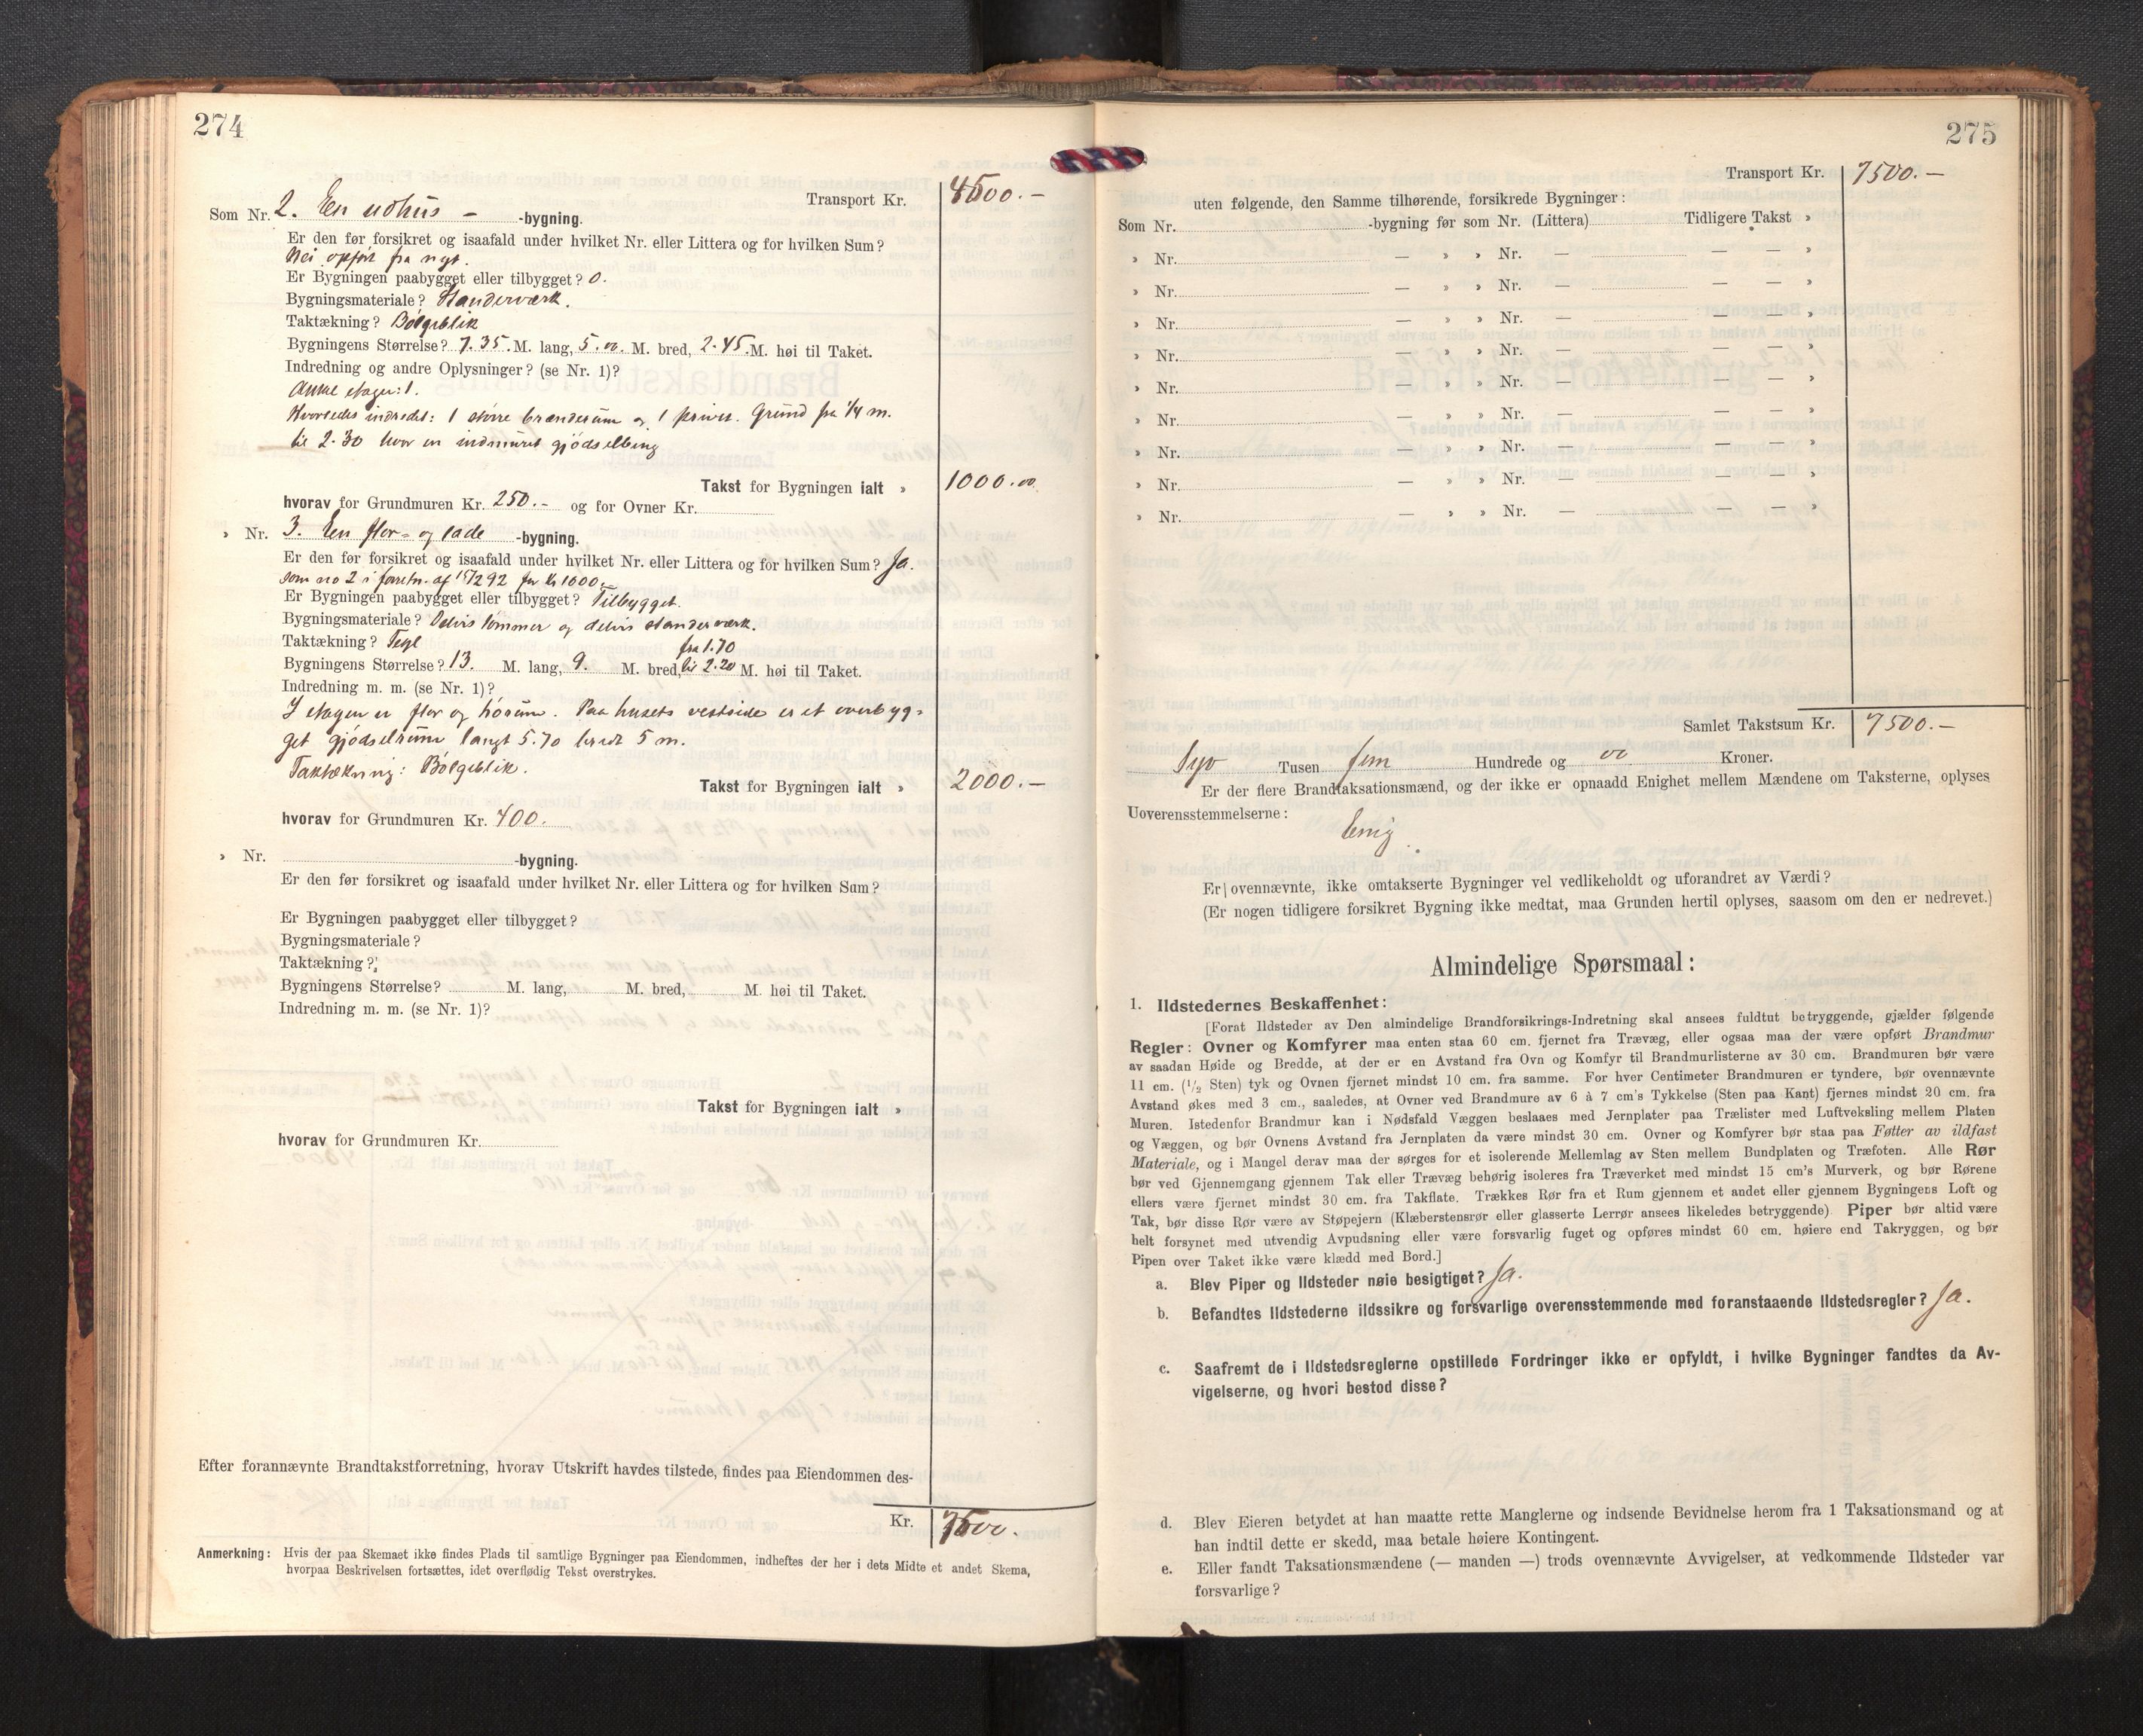 274
Transport Kr. 4500.-
Som Nr. 2. En udhus - -bygning.
Er den før forsikret og isaafald under hvilket Nr. eller Littera og for hvilken Sum?
Nei opført fra nyt.
Er Bygningen paabygget eller tilbygget? 0.
Bygningsmateriale? Standerværk.
Taktækning? Bølgeblik
Bygningens Størrelse? 7.35. M. lang, 5.00. M. bred, 2.45. M. høi til Taket.
Indredning og andre Oplysninger? (se Nr. 1)?
etager: 1.
Hvorledes indredet: 1 større brænderum og 1 privet. Grund fra 1/4 m.
til 2.30 hvor en indmuret gjødselbing
Takst for Bygningen ialt » 1000.00
hvorav for Grundmuren Kr. 250.- og for Ovner Kr.
» Nr. 3. En flor- og lade -bygning.
Er den før forsikret og isaafald under hvilket Nr. eller Littera og for hvilken Sum? Ja.
som no 2 i forretn. af 92 for Kr 1000.-
Er Bygningen paabygget eller tilbygget? Tilbygget.
Bygningsmateriale? Delvis tømmer og delvis standerværk.
Taktækning? Tegl
fra 1.70
Bygningens Størrelse? 13. M. lang, 9. M. bred, til 2.20 M. høi til Taket.
Indredning m. m. (se Nr. 1)?
I etagen er flor og hørum. Paa husets vestside er et overbyg-
get gjødselrum langt 5.70 bredt 5 m.
Taktækning: Bølgeblik.
Takst for Bygningen ialt » 2000.-
hvorav for Grundmuren Kr. 400.
» Nr. -bygning.
Er den før forsikret og isaafald under hvilket Nr. eller Littera og for hvilken Sum?
Er Bygningen paabygget eller tilbygget?
Bygningsmateriale?
Taktækning?
Bygningens Størrelse? M. lang, M. bred, M. høi til Taket.
Indredning m. m. (se Nr. 1)?
Takst for Bygningen ialt »
hvorav for Grundmuren Kr.
Efter forannævnte Brandtakstforretning, hvorav Utskrift havdes tilstede, findes paa Eiendommen des-
Kr. 7500.
Anmerkning: Hvis der paa Skemaet ikke findes Plads til samtlige Bygninger paa Eiendommen, indheftes der her i dets Midte et andet Skema,
hvorpaa Beskrivelsen fortsættes, idet overflødig Tekst overstrykes.
275
Transport Kr. 7500.-
uten følgende, den Samme tilhørende, forsikrede Bygninger:
Som Nr. -bygning før som Nr. (Littera) Tidligere Takst »
» Nr. — » » Nr. — — — »
» Nr. — » » Nr. — — — »
» Nr. — » » Nr. — — — »
» Nr. — » » Nr. — — — »
» Nr. — » » Nr. — — — »
» Nr. — » » Nr. — — — »
» Nr. — » » Nr. — — — »
» Nr. — » » Nr. — — — »
» Nr. — » » Nr. — — — »
Samlet Takstsum Kr. 7500.-
Syv Tusen fem Hundrede og 00 Kroner.
Er der flere Brandtaksationsmænd, og der ikke er opnaadd Enighet mellem Mændene om Taksterne, oplyses
Uoverensstemmelserne:
Enig.
Er ovennævnte, ikke omtakserte Bygninger vel vedlikeholdt og uforandret av Værdi?
(Er nogen tidligere forsikret Bygning ikke medtat, maa Grunden hertil oplyses, saasom om den er nedrevet.)
Almindelige Spørsmaal:
1. Ildstedernes Beskaffenhet:
[Forat Ildsteder av Den almindelige Brandforsikrings-Indretning skal ansees fuldtut betryggende, gjælder følgende
Regler: Ovner og Komfyrer maa enten staa 60 cm. fjernet fra Trævæg, eller ogsaa maa der være opført Brandmur
av saadan Høide og Bredde, at der er en Avstand fra Ovn og Komfyr til Brandmurlisterne av 30 cm. Brandmuren bør være
11 cm. (1/2 Sten) tyk og Ovnen fjernet mindst 10 cm. fra samme. For hver Centimeter Brandmuren er tyndere, bør ovennævnte
Avstand økes med 3 cm., saaledes, at Ovner ved Brandmure av 6 à 7 cm's Tykkelse (Sten paa Kant) fjernes mindst 20 cm. fra
Muren. Istedenfor Brandmur kan i Nødsfald Væggen beslaaes med Jernplater paa Trælister med Luftveksling mellem Platen
og Væggen, og bør Ovnens Avstand fra Jernplaten da være mindst 30 cm. Ovner og Komfyrer bør staa paa Føtter av ildfast
Materiale, og i Mangel derav maa der sørges for et isolerende Mellemlag av Sten mellem Bundplaten og Træfoten. Alle Rør
bør ved Gjennemgang gjennem Tak eller Trævæg behørig isoleres fra Træverket med mindst 15 cm's Murverk, og bør Rørene
ellers være fjernet mindst 30 cm. fra Takflate. Trækkes Rør fra et Rum gjennem et andet eller gjennem Bygningens Loft og
Tak, bør disse Rør være av Støpejern (Klæberstensrør eller glasserte Lerrør ansees likeledes betryggende) Piper bør altid være
helt forsynet med utvendig Avpudsning eller være forsvarlig fuget og opføres mindst 60 cm. høiere end Takryggen, og bør
Pipen over Taket ikke være klædd med Bord.]
a. Blev Piper og Ildsteder nøie besigtiget? Ja.
b. Befandtes Ildstederne ildssikre og forsvarlige overensstemmende med foranstaaende Ildstedsregler? Ja.
c. Saafremt de i Ildstedsreglerne opstillede Fordringer ikke er opfyldt, i hvilke Bygninger fandtes da Av-
vigelserne, og hvori bestod disse?
d. Blev Eieren betydet at han maatte rette Manglerne og indsende Bevidnelse herom fra 1 Taksationsmand og at
han indtil dette er skedd, maa betale høiere Kontingent.
e. Eller fandt Taksationsmændene (— manden —) trods ovennævnte Avvigelser, at vedkommende Ildsteder var
forsvarlige?